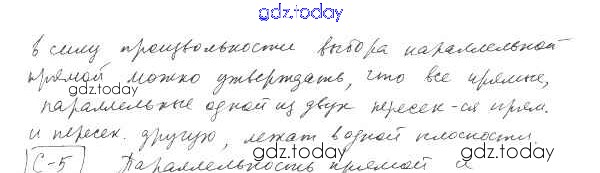 gdz.today
в силу произвольности выбора параллельной
прямой можно утверждать, что все прямые,
параллельные одной из двух пересек-ся прям.
и пересек. другую, лежат в одной плоскости.
gdz.today gdz.today
С-5 Параллельность прямой и
gdz.today gdz.today